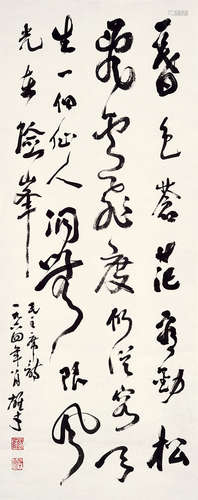 暮色苍茫看劲松
乱云飞度仍从容天
生一个仙人洞无限风
光在险峰
毛主席诗
一九六四年八月 雄才